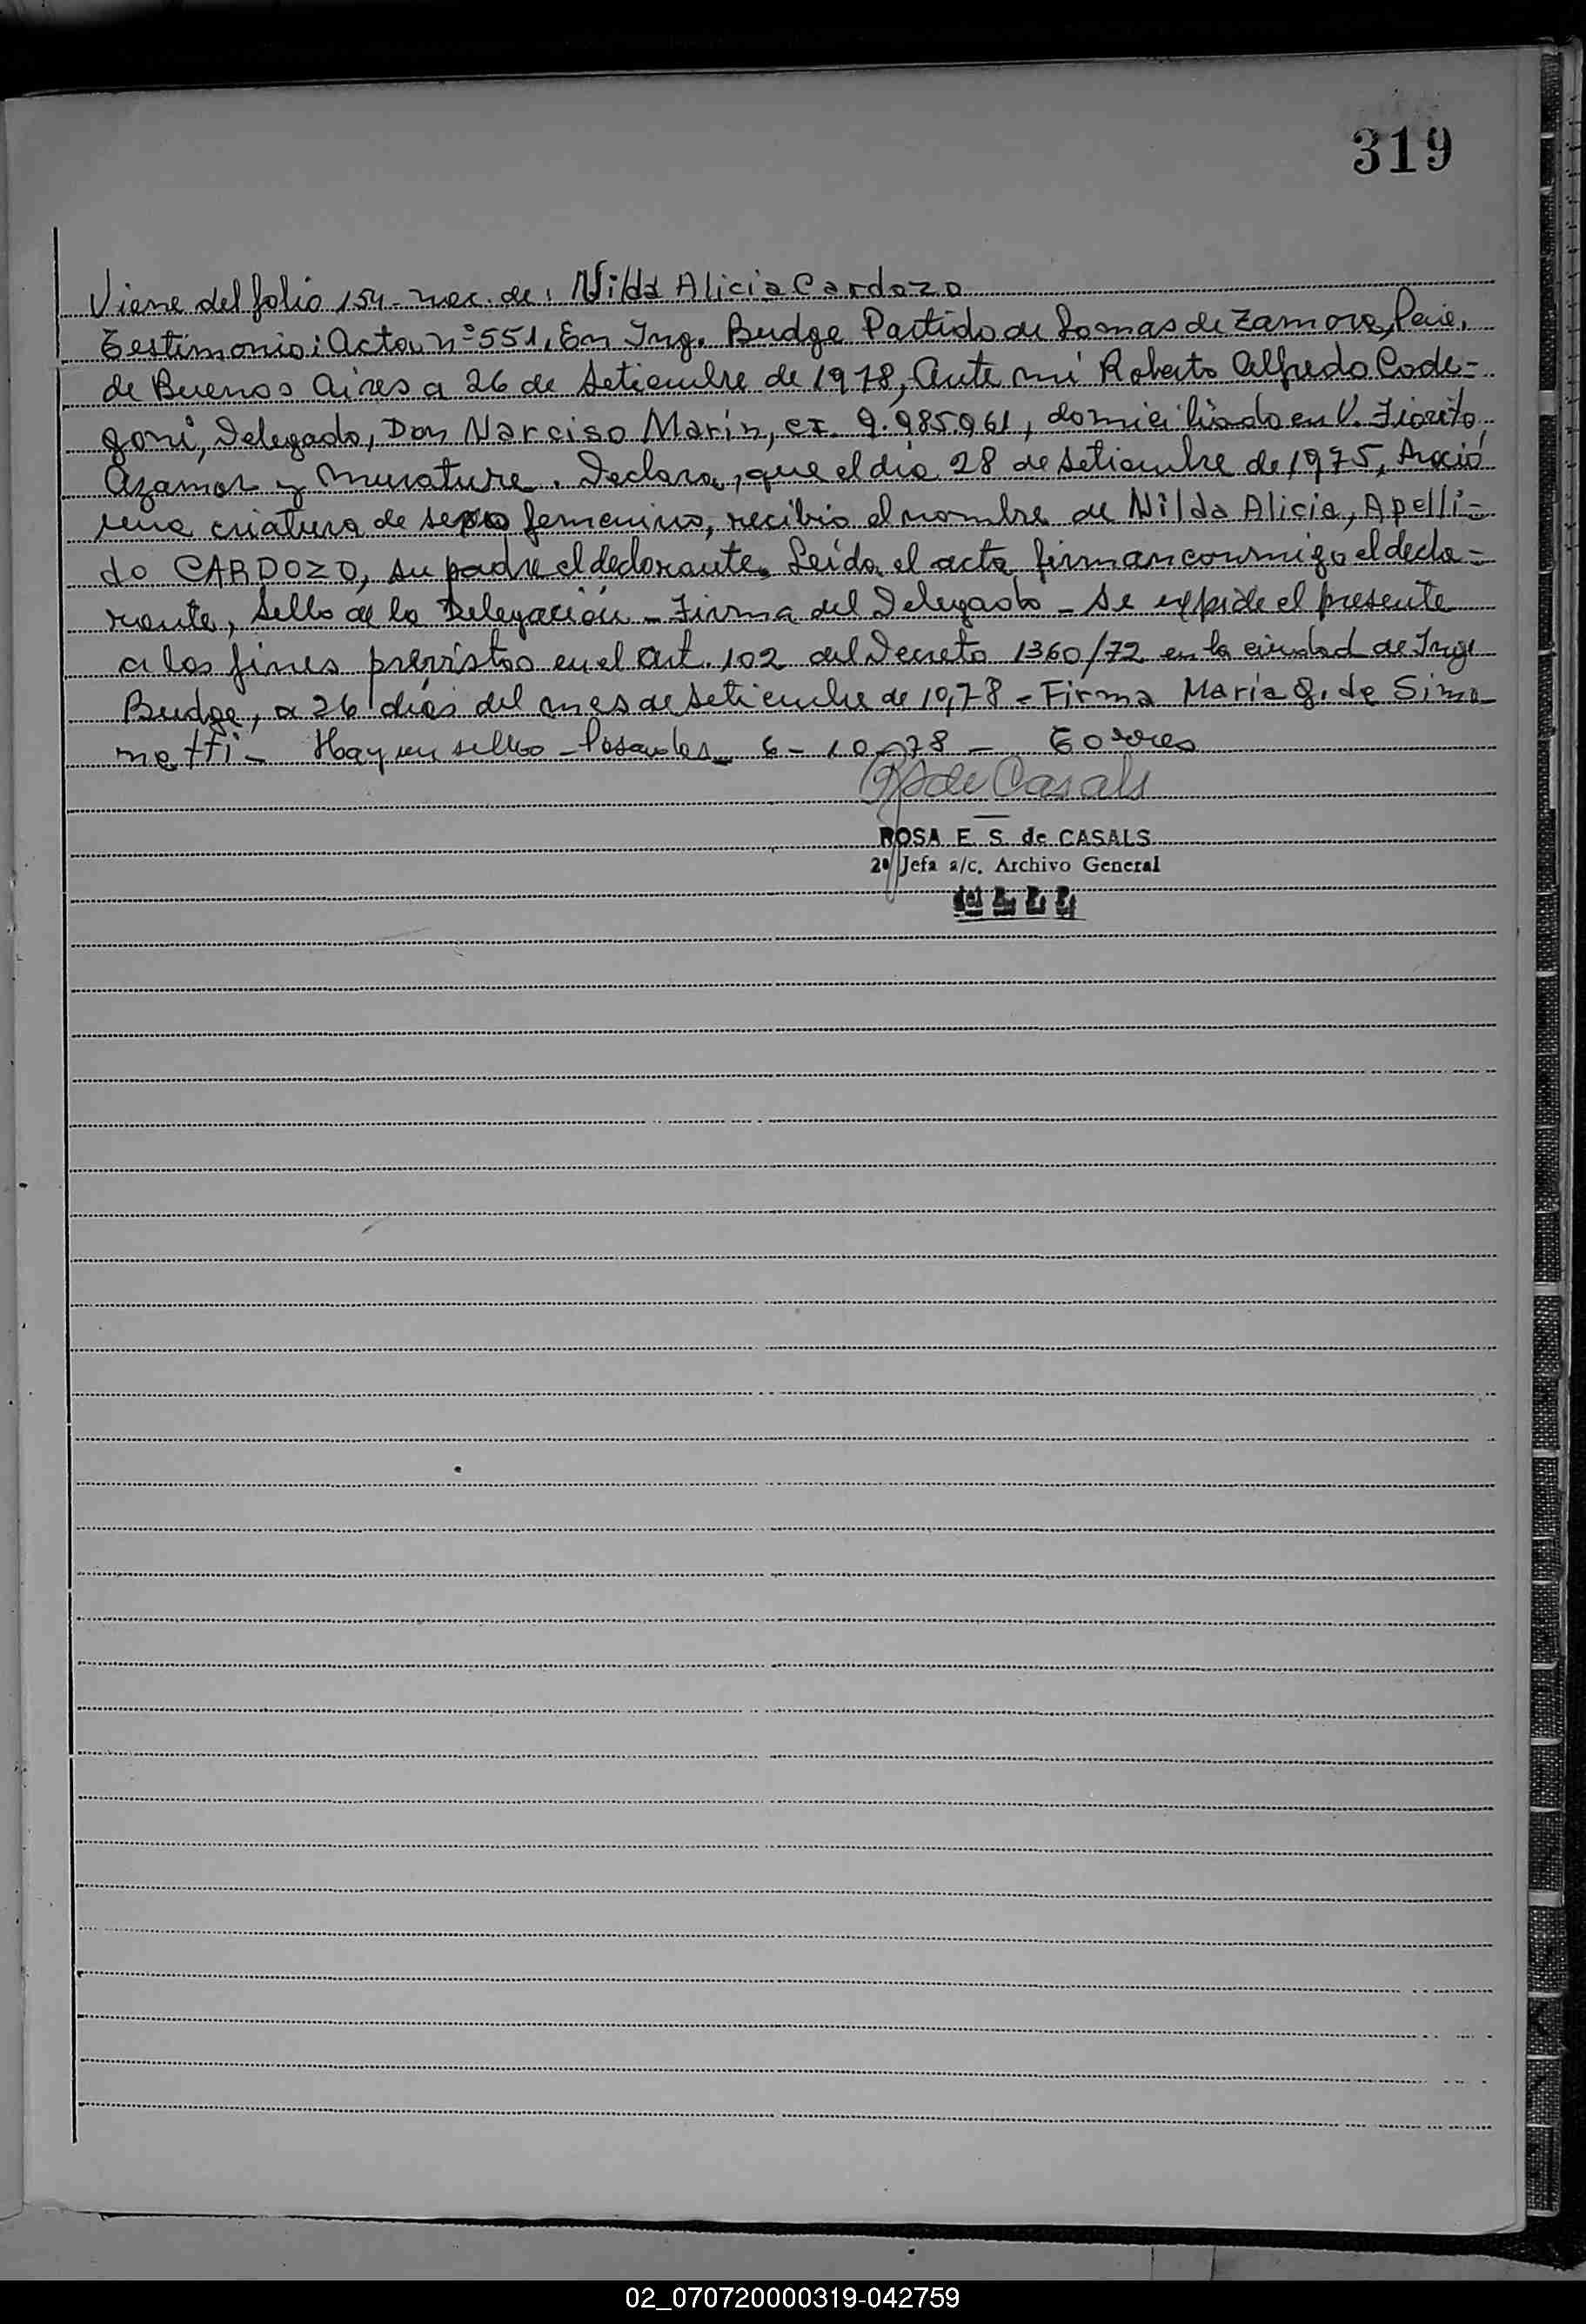 319
Viene del folio 154 - nac. de: Nilda Alicia Cardozo
Testimonio: Acta nº 551. En Ing. Budge Partido de Lomas de Zamora, Pcia.
de Buenos Aires a 26 de Setiembre de 1978, Ante mí Roberto Alfredo Code=
goni, Delegado, Don Narciso Marín, CI. 9.985.961, domiciliado en V. Fiorito,
Azamor y Murature. Declara, que el día 28 de setiembre de 1975, Nació
una criatura de sexo femenino, recibio el nombre de Nilda Alicia, Apelli=
do CARDOZO, su padre el declarante. Leída el acta firman conmigo el decla=
rante, Sello de la Delegación - Firma del Delegado - Se expide el presente
a los fines previstos en el Art. 102 del Decreto 1360/72 en la ciudad de Inge
Budge, a 26 días del mes de setiembre de 1978 - Firma María G. de Simo
netti - Hay un sello - Posadas 6-10-78 - Torres
de Casals
ROSA E. S. de CASALS
2ª Jefa a/c. Archivo General
del
02_070720000319-042759